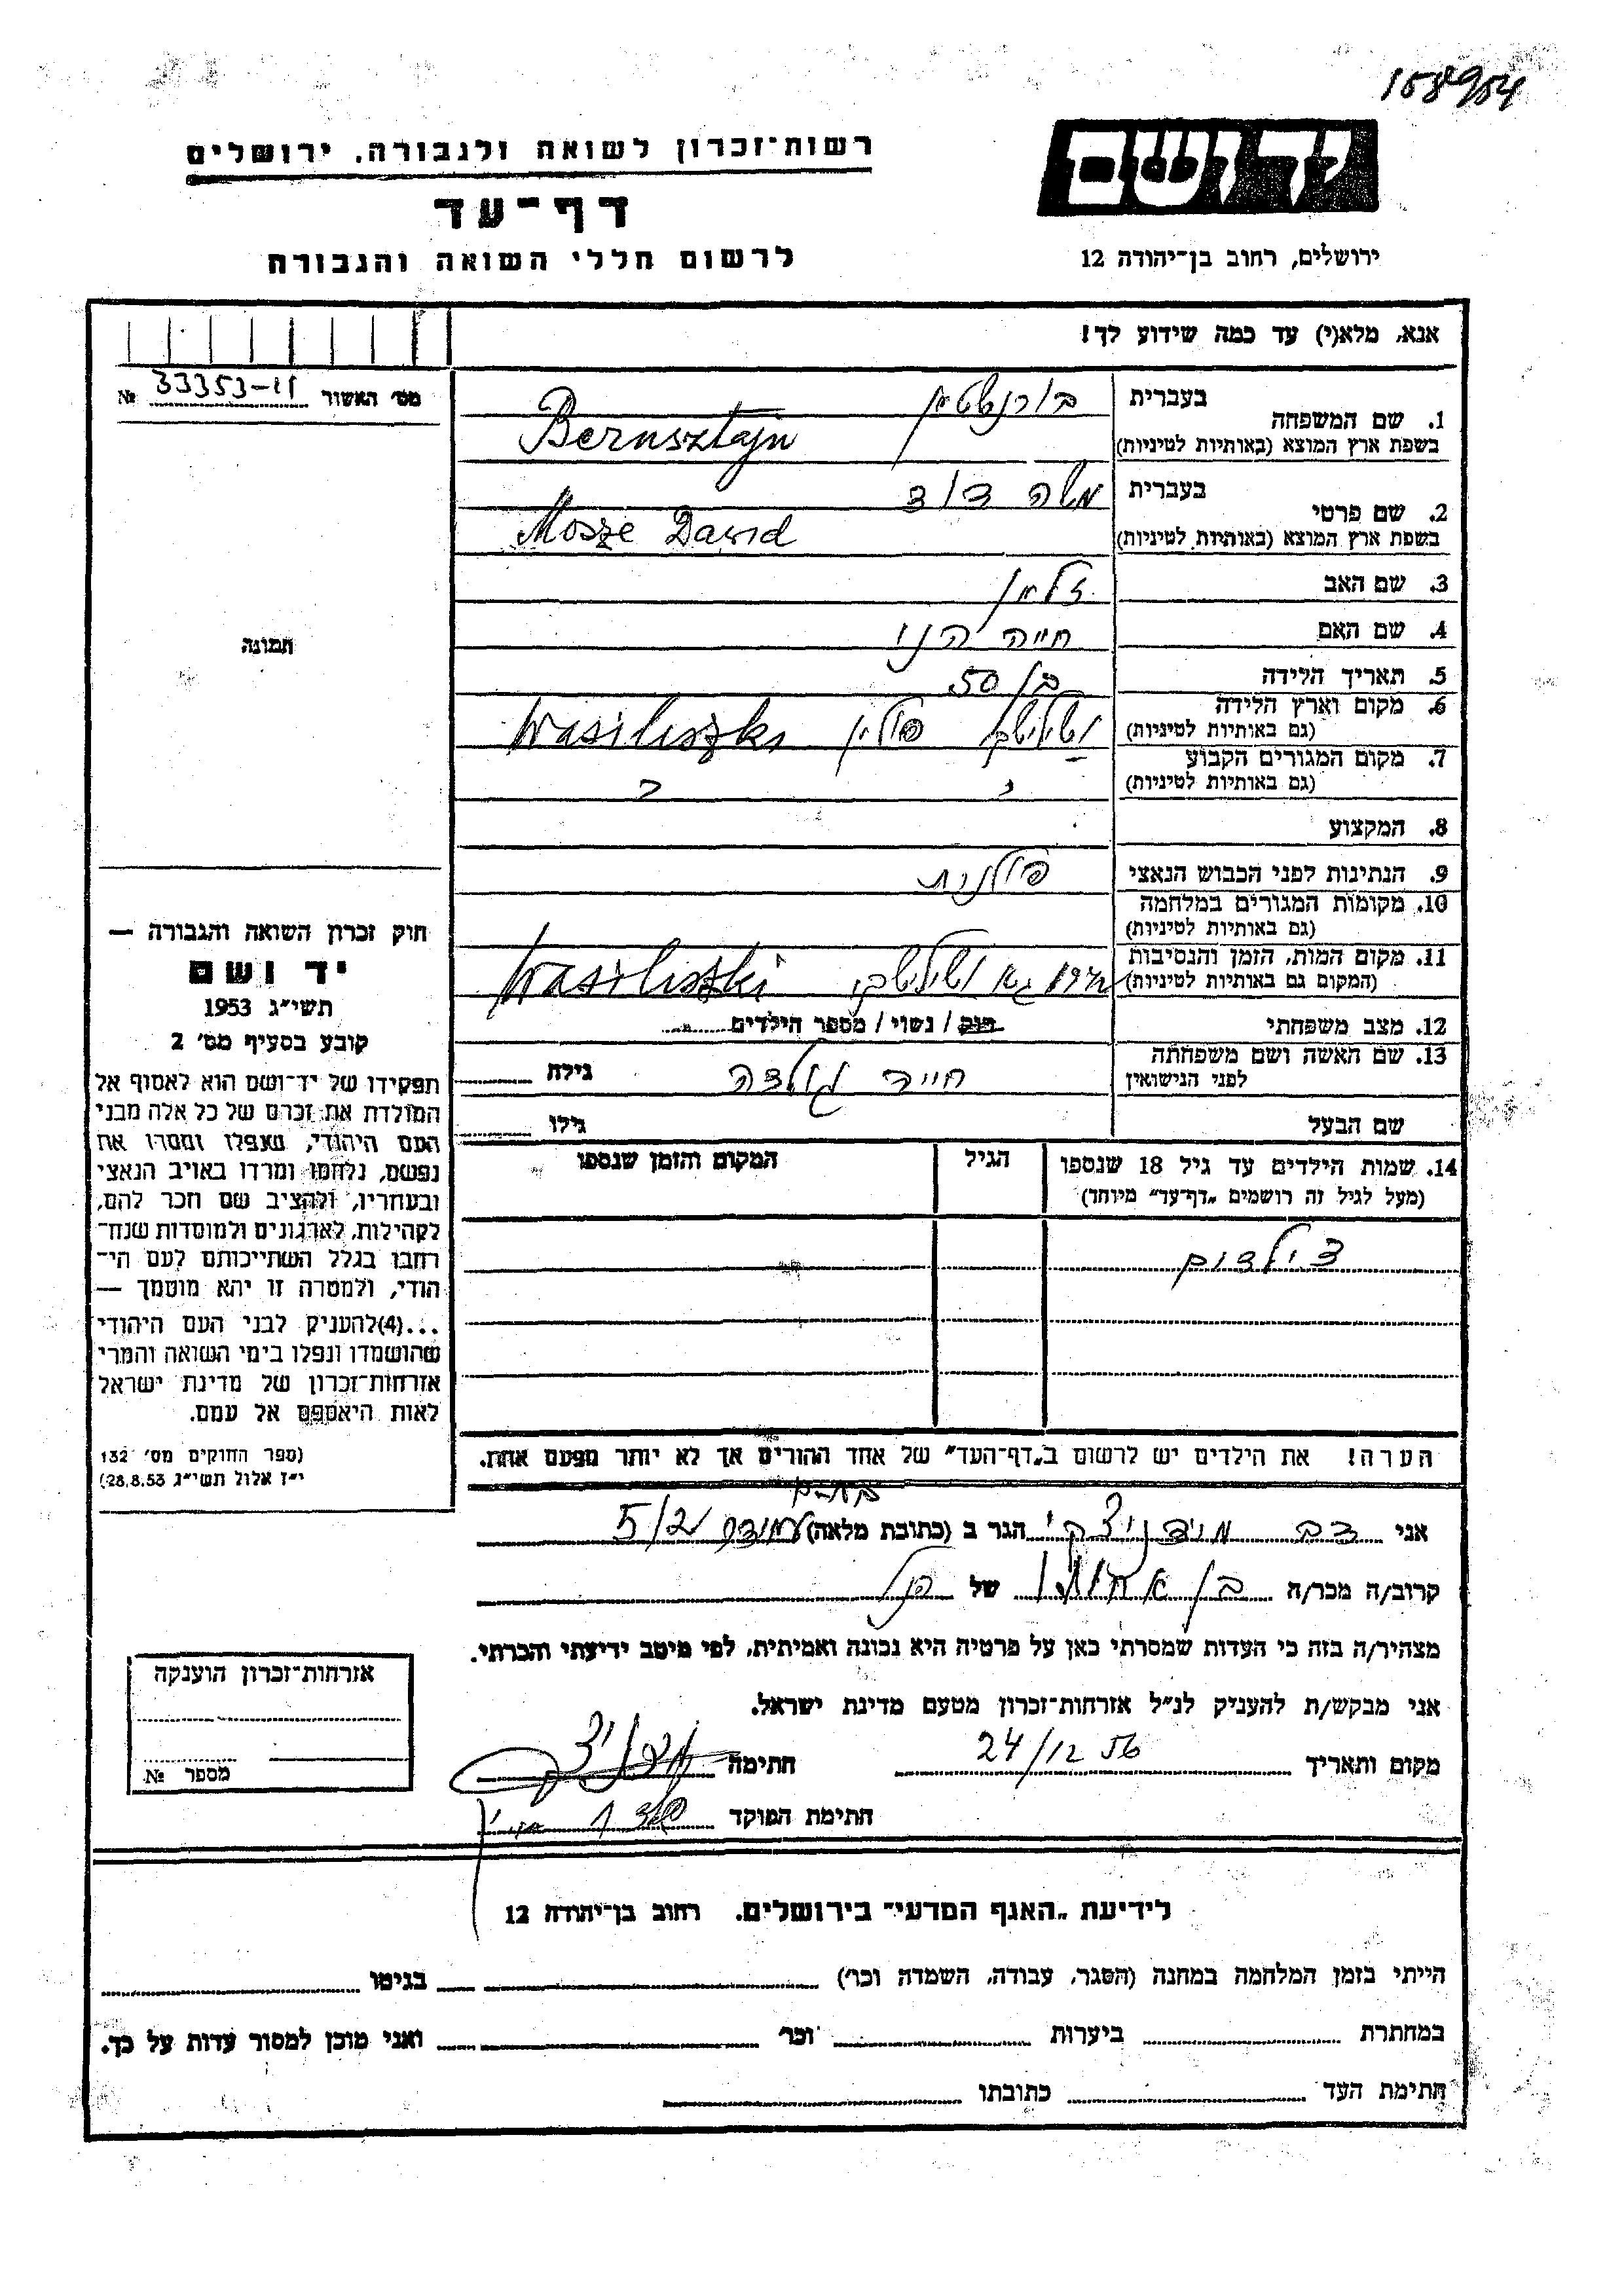 158954
רשות־זכרון לשואה ולגבורה, ירושלים
יד ושם
דף־עד
לרשום חללי השואה והגבורה
ירושלים, רחוב בן־יהודה 12
אנא, מלא(י) עד כמה שידוע לך!
מס' האשור 33353-11 №
1. שם המשפחה
בעברית ברנשטיין
בשפת ארץ המוצא (באותיות לטיניות) Bernsztajn
2. שם פרטי
בעברית משה דוד
בשפת ארץ המוצא (באותיות לטיניות) Mosze Dawid
3. שם האב זלמן
4. שם האם חייה
תמונה
5. תאריך הלידה בן 50
6. מקום וארץ הלידה
(גם באותיות לטיניות) ושילישקי פולין Wasiliszki
7. מקום המגורים הקבוע
(גם באותיות לטיניות)
8. המקצוע
9. הנתינות לפני הכבוש הנאצי פולנית
10. מקומות המגורים במלחמה
(גם באותיות לטיניות)
11. מקום המות, הזמן והנסיבות
(המקום גם באותיות לטיניות) ושילישקי Wasiliszki
12. מצב משפחתי רווק / נשוי / מספר הילדים
13. שם האשה ושם משפחתה
לפני הנישואין חייה גולדה גילה
שם הבעל גילו
14. שמות הילדים עד גיל 18 שנספו
(מעל לגיל זה רושמים „דף־עד" מיוחד)
הגיל
המקום והזמן שנספו
חוק זכרון השואה והגבורה —
יד ושם
תשי"ג 1953
קובע בסעיף מס' 2
תפקידו של יד־ושם הוא לאסוף אל
המולדת את זכרם של כל אלה מבני
העם היהודי, שנפלו ומסרו את
נפשם, נלחמו ומרדו באויב הנאצי
ובעוזריו, ולהציב שם וזכר להם,
לקהילות, לארגונים ולמוסדות שנח־
רבו בגלל השתייכותם לעם הי־
הודי, ולמטרה זו יהא מוסמך —
...(4) להעניק לבני העם היהודי
שהושמדו ונפלו בימי השואה והמרי
אזרחות־זכרון של מדינת ישראל
לאות היאספם אל עמם.
(ספר החוקים מס' 132
י"ז אלול תשי"ג 28.8.53)
הערה! את הילדים יש לרשום ב„דף־העד" של אחד ההורים אך לא יותר מפעם אחת.
בת-ים
אני דב הגר ב (כתובת מלאה) 5/2
קרוב/ה מכר/ה בן אחותו של הנ"ל
מצהיר/ה בזה כי העדות שמסרתי כאן על פרטיה היא נכונה ואמיתית, לפי מיטב ידיעתי והכרתי.
אני מבקש/ת להעניק לנ"ל אזרחות־זכרון מטעם מדינת ישראל.
מקום ותאריך 24/12 56 חתימה
חתימת הפוקד
אזרחות־זכרון הוענקה
מספר №
לידיעת „האגף המדעי" בירושלים. רחוב בן־יהודה 12
הייתי בזמן המלחמה במחנה (הסגר, עבודה, השמדה וכו') בגיטו
במחתרת ביערות וכו' ואני מוכן למסור עדות על כך.
חתימת העד כתובתו